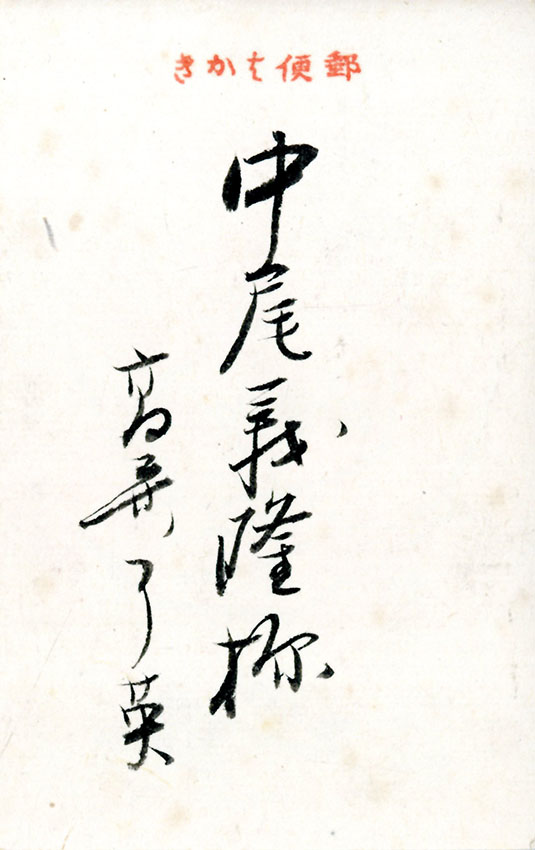 郵便はかき
中尾義隆様
高井了英